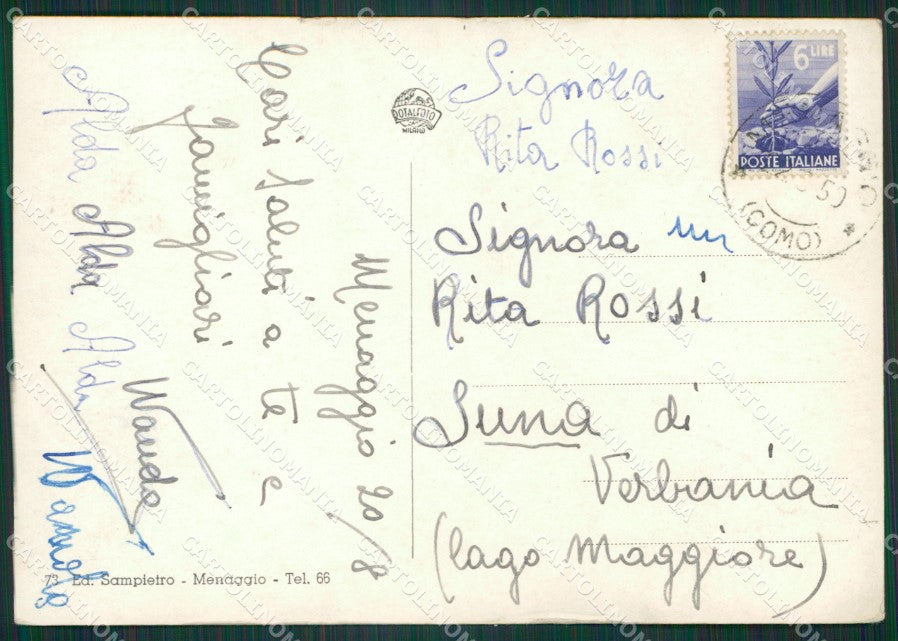 Menaggio 20/8
Cari saluti a te e
famigliari
Wanda
Alda Alda Alda
Wanda
ROTALFOTO
MILANO
73 Ed. Sampietro - Menaggio - Tel. 66
6 LIRE
POSTE ITALIANE
50
(COMO)
Signora
Rita Rossi
Signora
Rita Rossi
Suna di
Verbania
(lago Maggiore)
CARTOLINOMANIA